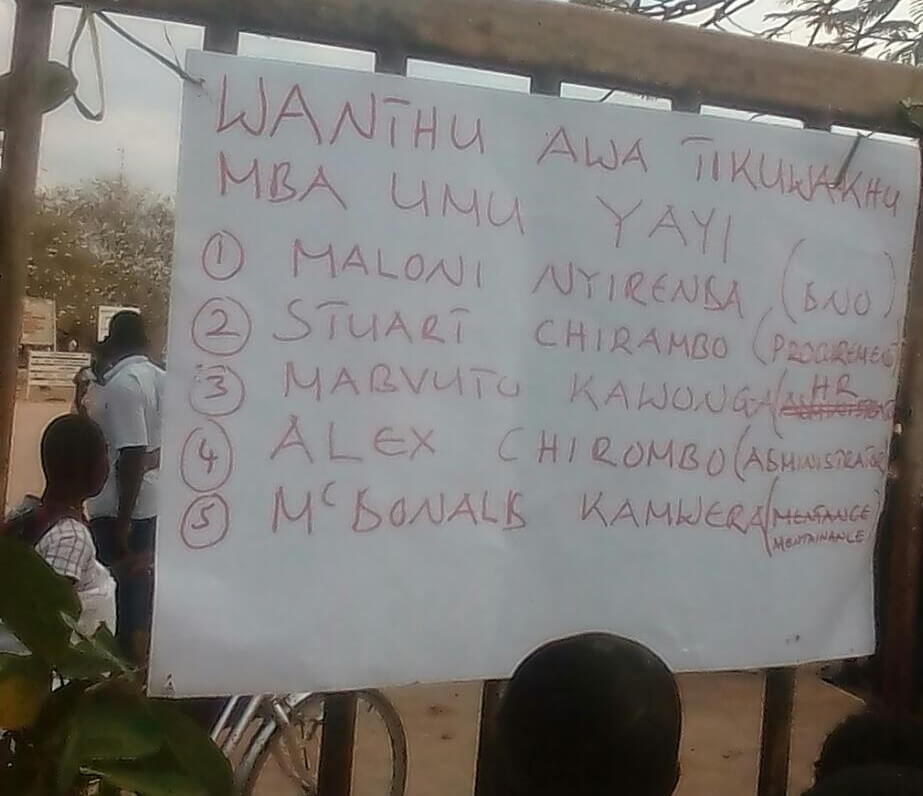 WANTHU AWA TIKUWAKHU
MBA UMU YAYI
1 MALONI NYIRENDA (DNO)
2 STUART CHIRAMBO (PROCUREMENT
3 MABVUTO KAWONGA (HR
4 ALEX CHIROMBO (ADMINISTRATOR)
5 McDONALD KAMWERA (MENTANCE
MENTAINANCE)